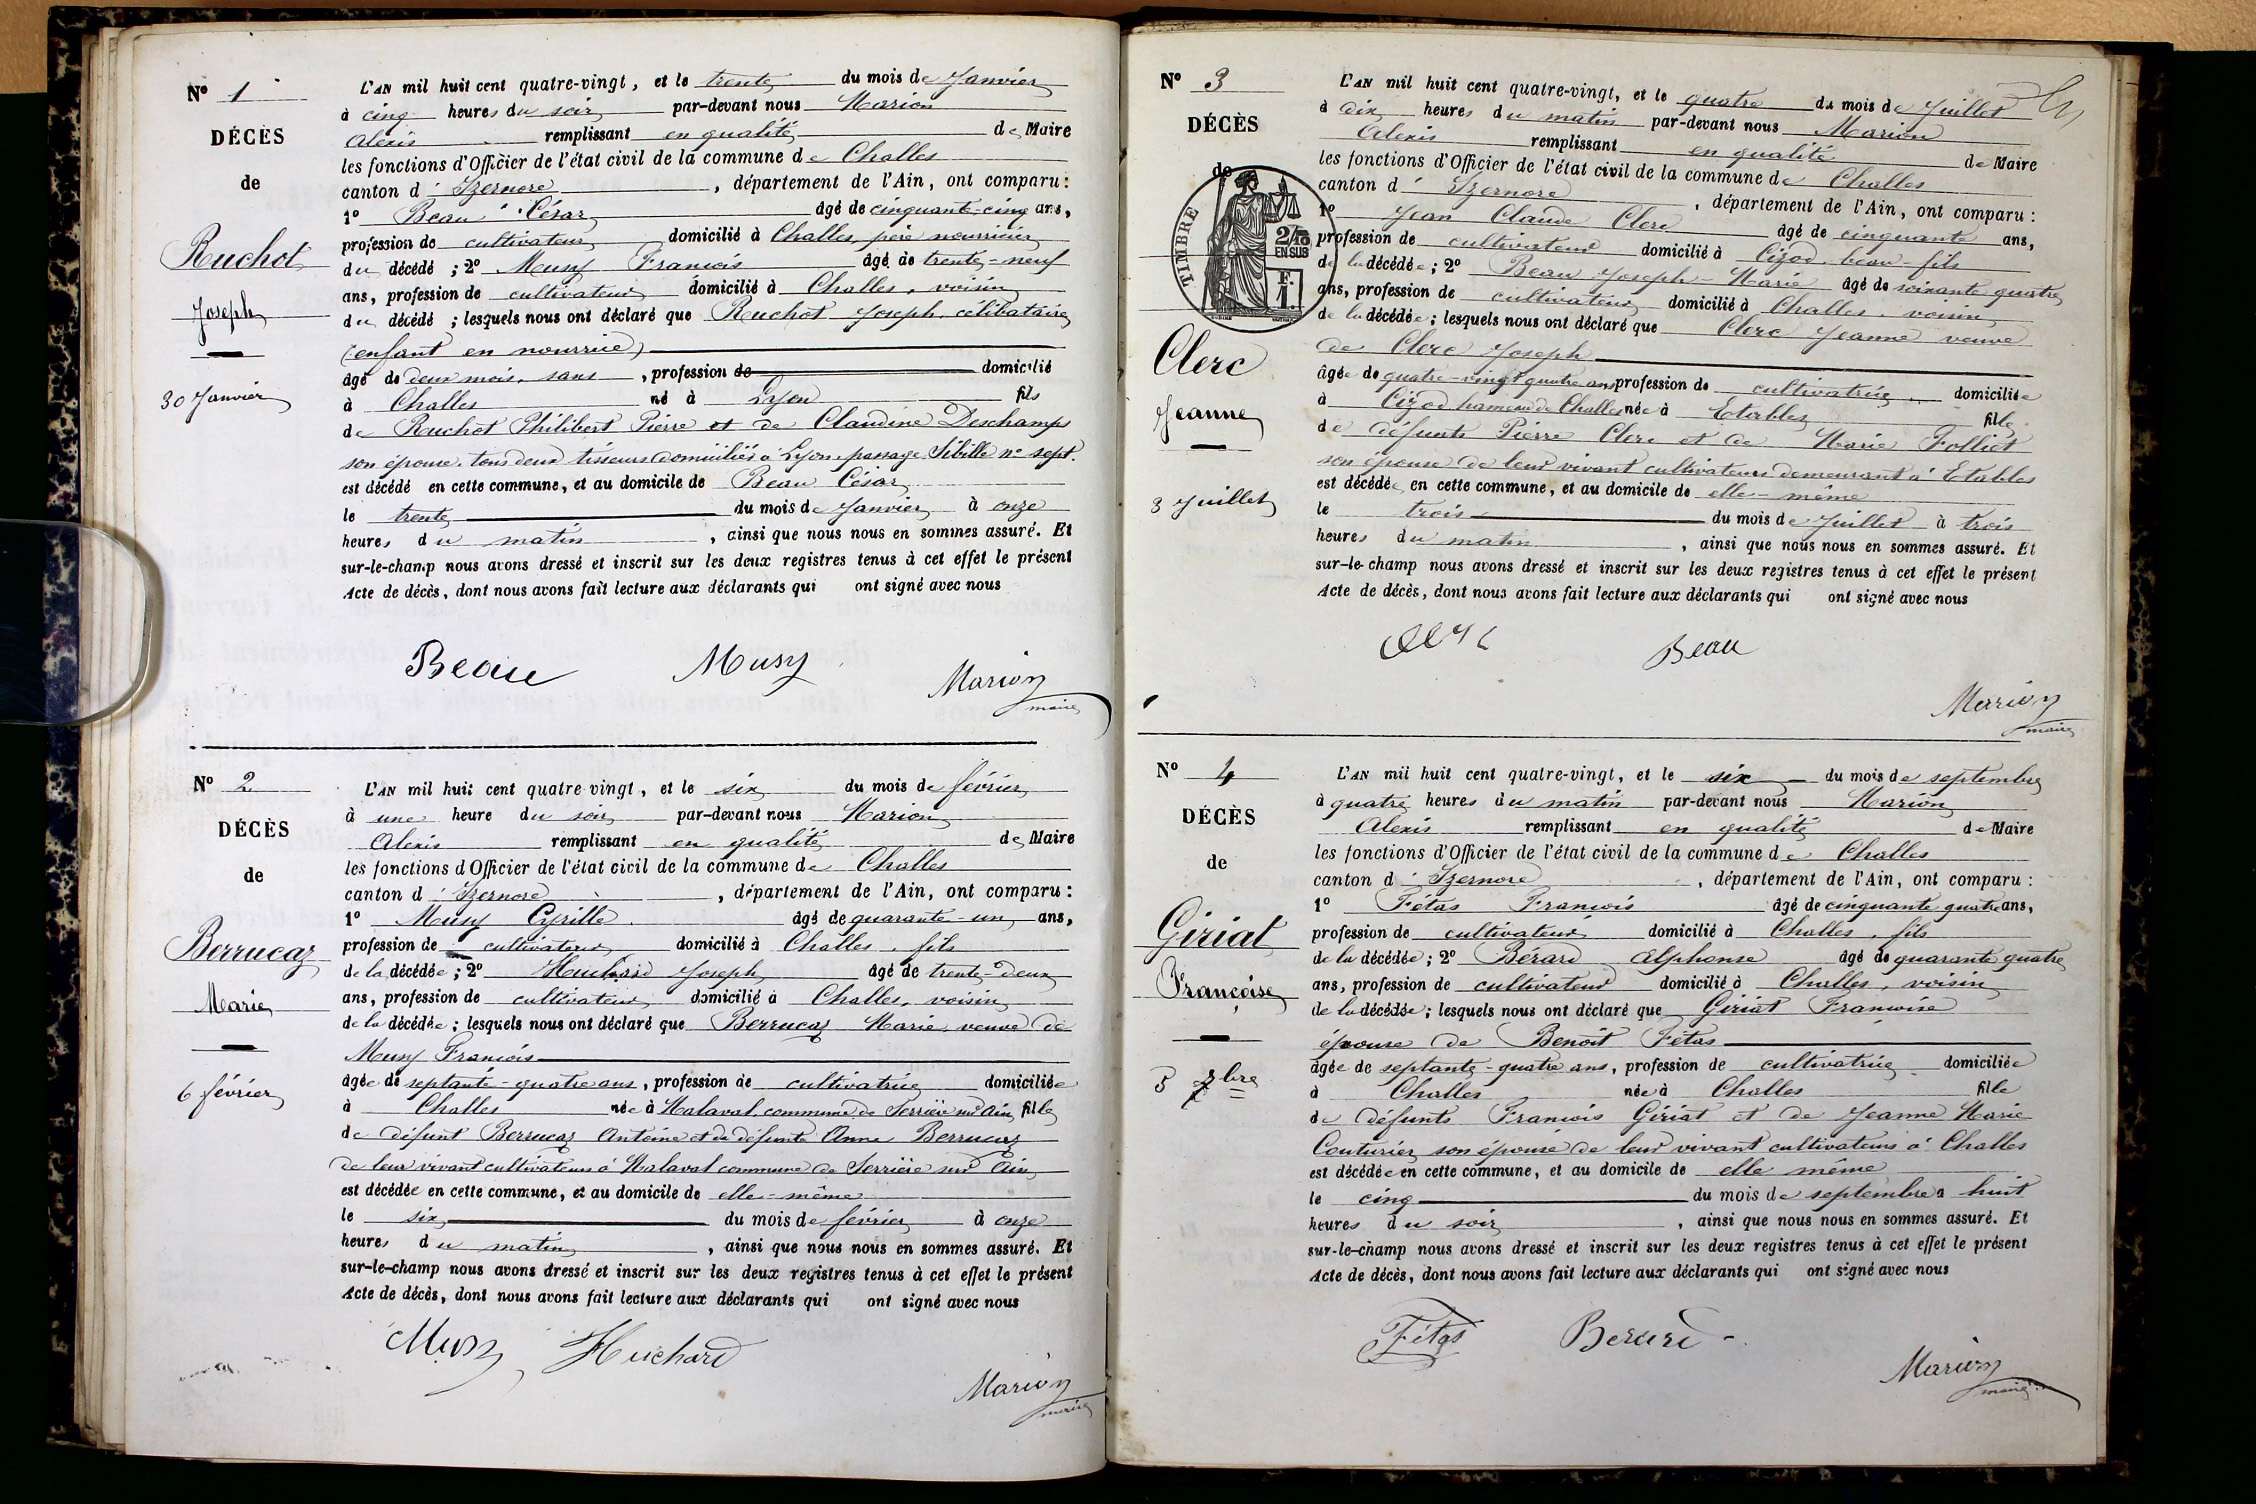 N° 1
DÉCÈS
de
Ruchot
Joseph
30 Janvier
L'AN mil huit cent quatre-vingt, et le trente du mois de Janvier
à cinq heures du soir par-devant nous Marion
Alexis remplissant en qualité de Maire
les fonctions d'Officier de l'état civil de la commune de Challes
canton d' Izernore, département de l'Ain, ont comparu :
1° Beau César âgé de cinquante-cinq ans,
profession de cultivateur domicilié à Challes, père nourricier
du décédé ; 2° Musy François âgé de trente-neuf
ans, profession de cultivateur domicilié à Challes, voisin
du décédé ; lesquels nous ont déclaré que Ruchot Joseph, célibataire
(enfant en nourrice)
âgé de deux mois, sans, profession de domicilié
à Challes né à Lyon fils
de Ruchot Philibert Pierre et de Claudine Deschamps
son épouse, tous deux tisseurs domiciliés à Lyon, passage Sibille n° sept.
est décédé en cette commune, et au domicile de Beau César
le trente du mois de Janvier à onze
heures du matin, ainsi que nous nous en sommes assuré. Et
sur-le-champ nous avons dressé et inscrit sur les deux registres tenus à cet effet le présent
Acte de décès, dont nous avons fait lecture aux déclarants qui ont signé avec nous
Beau Musy Marion
maire
N° 2
DÉCÈS
de
Berrucaz
Marie
6 février
L'AN mil huit cent quatre-vingt, et le six du mois de février
à une heure du soir par-devant nous Marion
Alexis remplissant en qualité de Maire
les fonctions d'Officier de l'état civil de la commune de Challes
canton d' Izernore, département de l'Ain, ont comparu :
1° Musy Cyrille âgé de quarante-un ans,
profession de cultivateur domicilié à Challes, fils
de la décédée ; 2° Huchard Joseph âgé de trente-deux
ans, profession de cultivateur domicilié à Challes, voisin
de la décédée ; lesquels nous ont déclaré que Berrucaz Marie veuve de
Musy François
âgée de septante-quatre ans, profession de cultivatrice domiciliée
à Challes née à Malaval commune de Serrière sur Ain fille
de défunt Berrucaz Antoine et de défunte Anne Berrucaz
de leur vivant cultivateurs à Malaval commune de Serrière sur Ain
est décédée en cette commune, et au domicile de elle-même
le six du mois de février à onze
heures du matin, ainsi que nous nous en sommes assuré. Et
sur-le-champ nous avons dressé et inscrit sur les deux registres tenus à cet effet le présent
Acte de décès, dont nous avons fait lecture aux déclarants qui ont signé avec nous
Musy Huchard
Marion
maire
N° 3
DÉCÈS
de
TIMBRE
2/10
EN SUS
F.
1.
Clerc
Jeanne
3 Juillet
L'AN mil huit cent quatre-vingt, et le quatre du mois de Juillet
à dix heures du matin par-devant nous Marion
Alexis remplissant en qualité de Maire
les fonctions d'Officier de l'état civil de la commune de Challes
canton d' Izernore, département de l'Ain, ont comparu :
1° Jean Claude Clerc âgé de cinquante ans,
profession de cultivateur domicilié à Cizod, beau-fils
de la décédée ; 2° Beau Joseph-Marie âgé de soixante quatre
ans, profession de cultivateur domicilié à Challes, voisin
de la décédée ; lesquels nous ont déclaré que Clerc Jeanne veuve
de Clerc Joseph
âgée de quatre-vingt quatre ans profession de cultivatrice domiciliée
à Cizod hameau de Challes née à Etables fille
de défunts Pierre Clerc et de Marie Folliet
son épouse de leur vivant cultivateurs demeurant à Etables
est décédée en cette commune, et au domicile de elle-même
le trois du mois de Juillet à trois
heures du matin, ainsi que nous nous en sommes assuré. Et
sur-le-champ nous avons dressé et inscrit sur les deux registres tenus à cet effet le présent
Acte de décès, dont nous avons fait lecture aux déclarants qui ont signé avec nous
Beau
Marion
maire
N° 4
DÉCÈS
de
Giriat
Françoise
5 7bre
L'AN mil huit cent quatre-vingt, et le six du mois de septembre
à quatre heures du matin par-devant nous Marion
Alexis remplissant en qualité de Maire
les fonctions d'Officier de l'état civil de la commune de Challes
canton d' Izernore, département de l'Ain, ont comparu :
1° Fétas François âgé de cinquante quatre ans,
profession de cultivateur domicilié à Challes, fils
de la décédée ; 2° Bérard Alphonse âgé de quarante quatre
ans, profession de cultivateur domicilié à Challes, voisin
de la décédée ; lesquels nous ont déclaré que Giriat Françoise
épouse de Benoît Fétas
âgée de septante-quatre ans, profession de cultivatrice domiciliée
à Challes née à Challes fille
de défunts François Giriat et de Jeanne Marie
Couturier son épouse de leur vivant cultivateurs à Challes
est décédée en cette commune, et au domicile de elle même
le cinq du mois de septembre à huit
heures du soir, ainsi que nous nous en sommes assuré. Et
sur-le-champ nous avons dressé et inscrit sur les deux registres tenus à cet effet le présent
Acte de décès, dont nous avons fait lecture aux déclarants qui ont signé avec nous
Fétas Berard
Marion
maire